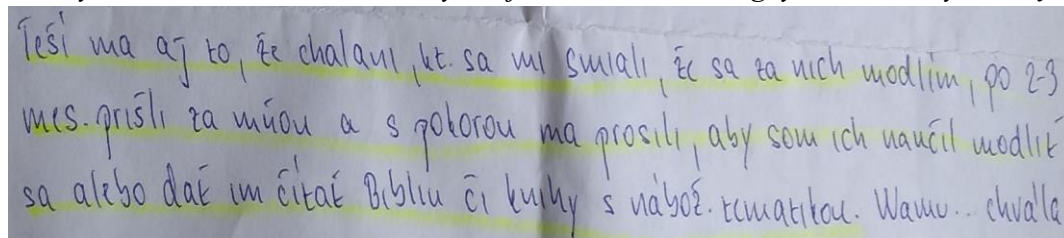 Teší ma aj to, že chalani, kt. sa mi smiali, že sa za nich modlím, po 2-3
mes. prišli za mňou a s pokorou ma prosili, aby som ich naučil modliť
sa alebo dať im čítať Bibliu či knihy s nábož. tematikou. Wamu.. chvála